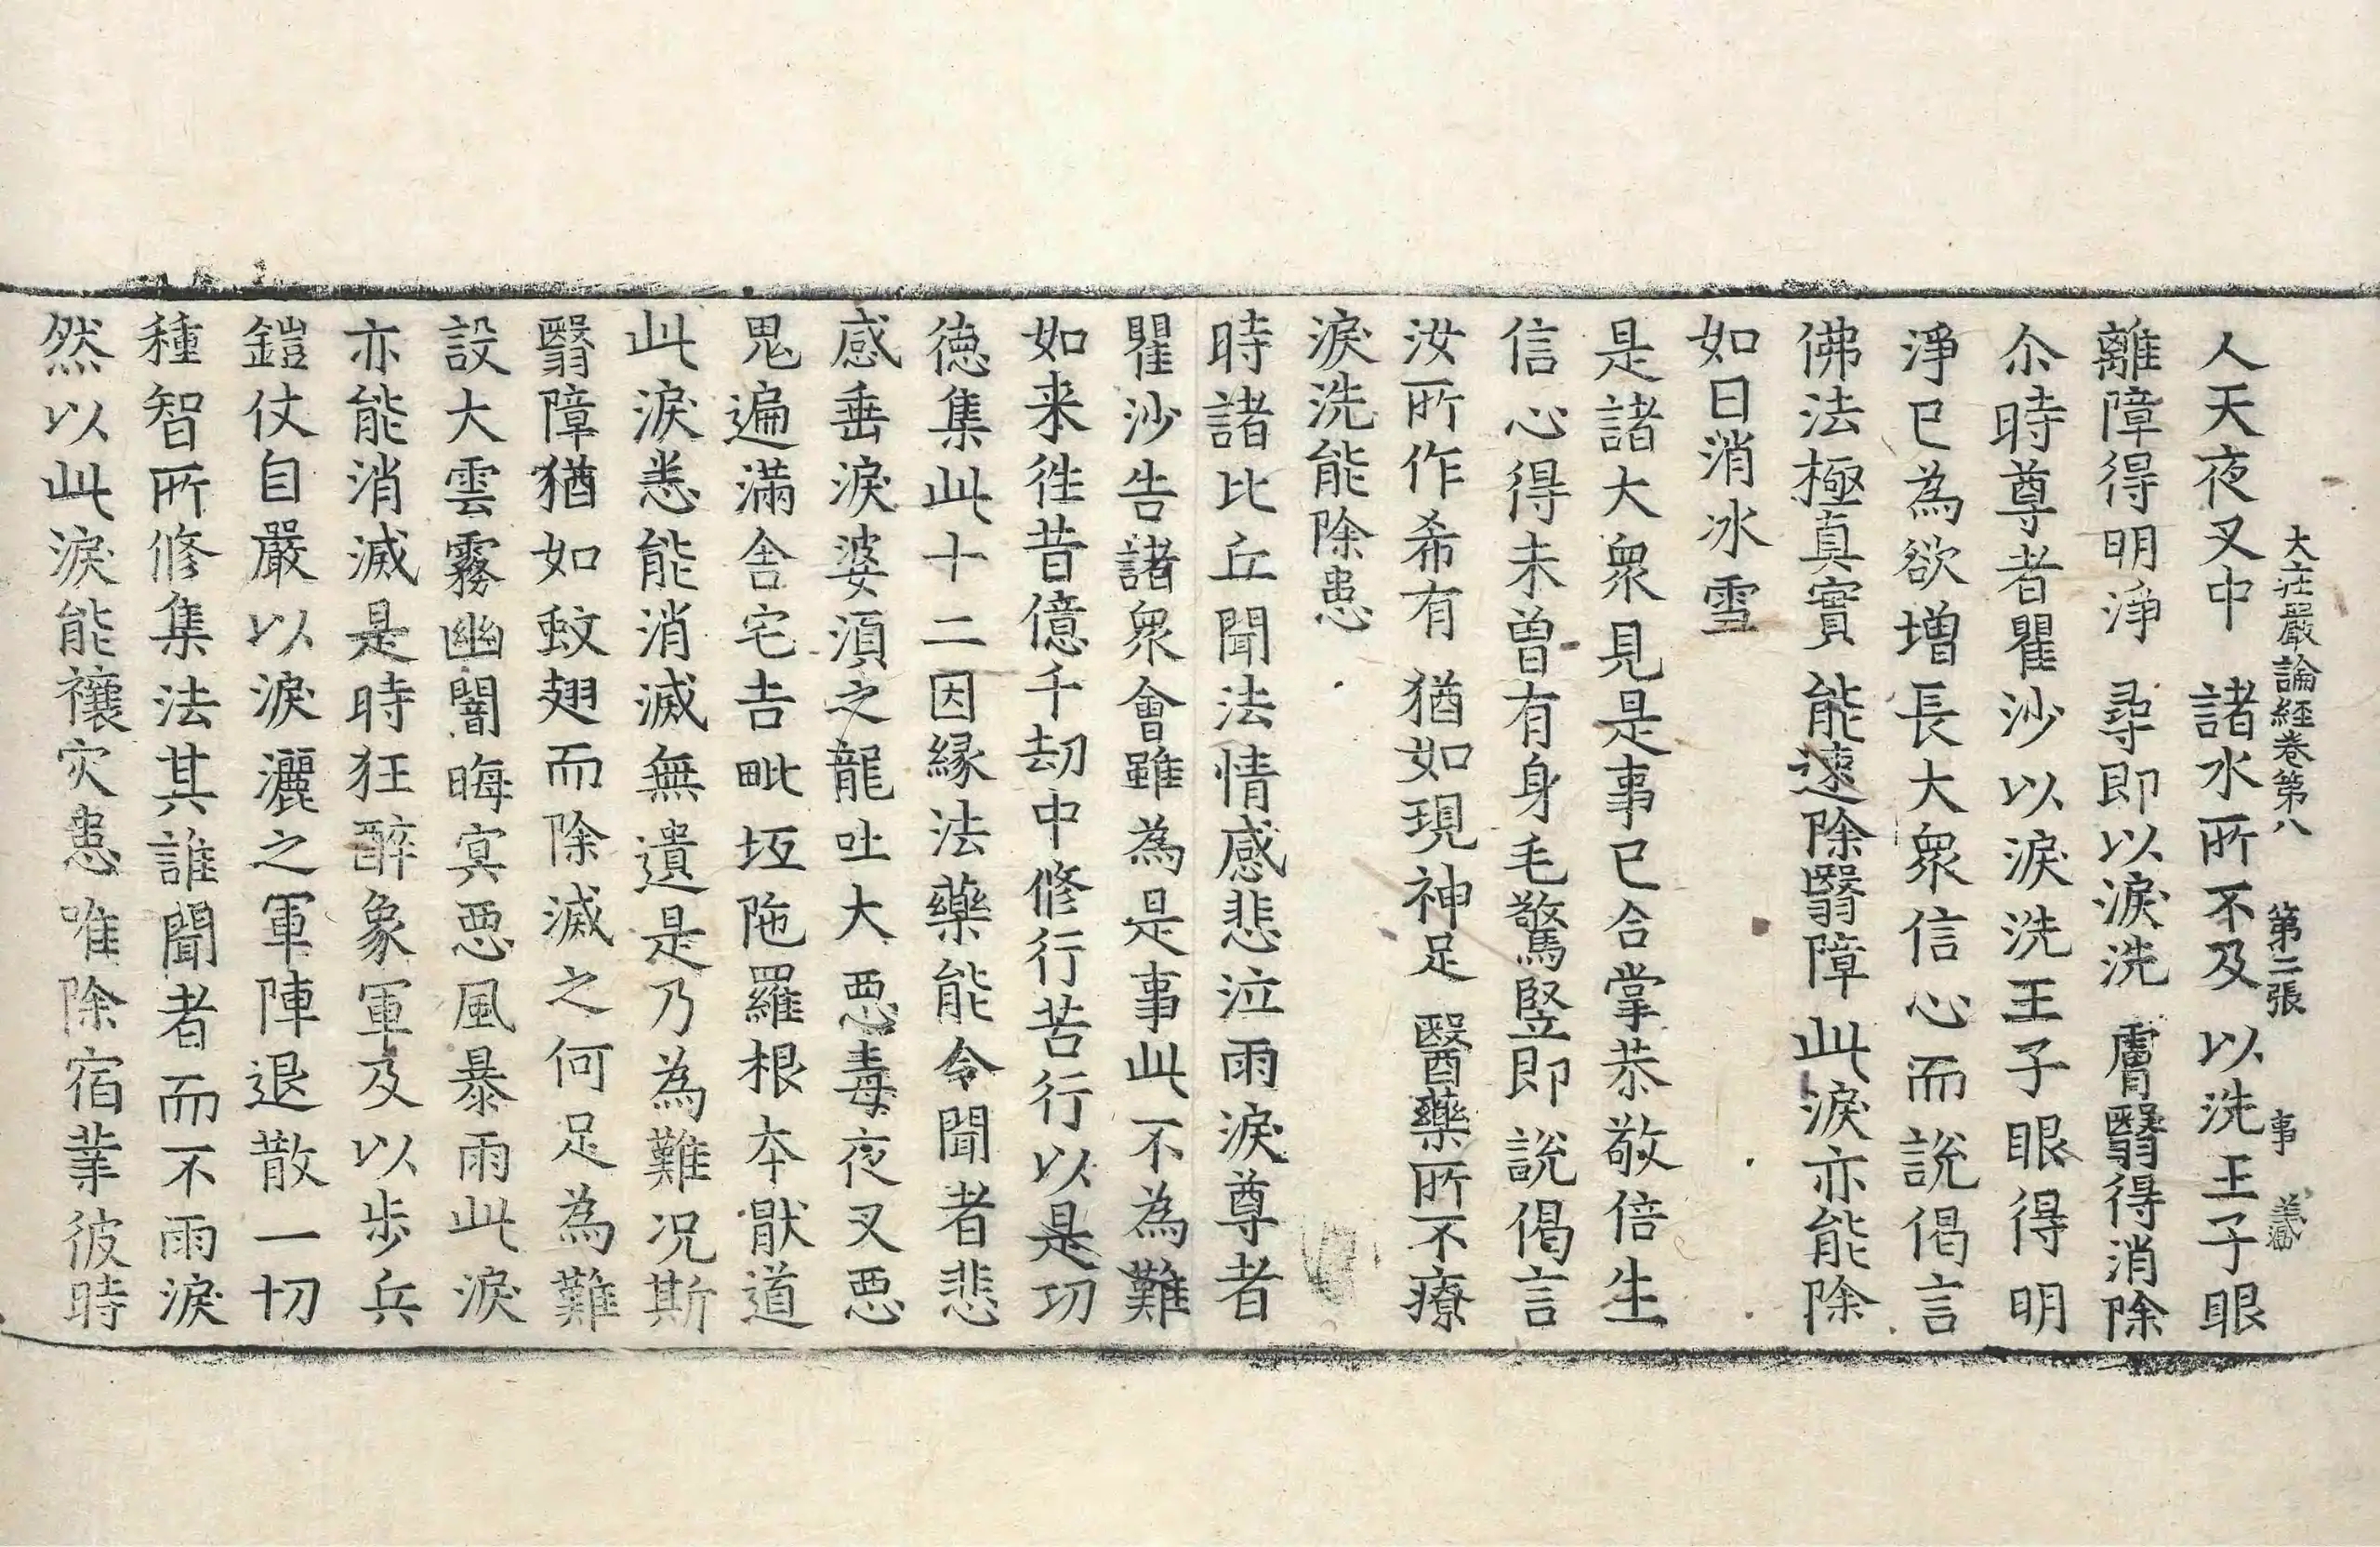 大庄嚴論經卷第八 第二張 事
人天夜叉中 諸水所不及 以洗王子眼
離障得明淨 尋即以淚洗 膚翳得消除
尒時尊者瞿沙以淚洗王子眼得明
淨已為欲增長大衆信心而說偈言
佛法極真實 能速除翳障 此淚亦能除
如日消冰雪
是諸大衆見是事已合掌恭敬倍生
信心得未曾有身毛驚竪即說偈言
汝所作希有 猶如現神足 醫藥所不療
淚洗能除患
時諸比丘聞法情感悲泣雨淚尊者
瞿沙告諸衆會雖為是事此不為難
如来徃昔億千劫中修行苦行以是功
德集此十二因緣法藥能令聞者悲
感垂淚婆湏之龍吐大惡毒夜叉惡
鬼遍滿舍宅吉毗坘陁羅根本猒道
此淚悉能消滅無遺是乃為難况斯
翳障猶如蚊翅而除滅之何足為難
設大雲霧幽闇晦冥惡風暴雨此淚
亦能消滅是時狂醉象軍及以步兵
鎧仗自嚴以淚灑之軍陣退散一切
種智所修集法其誰聞者而不雨淚
然以此淚能禳灾患唯除宿業彼時